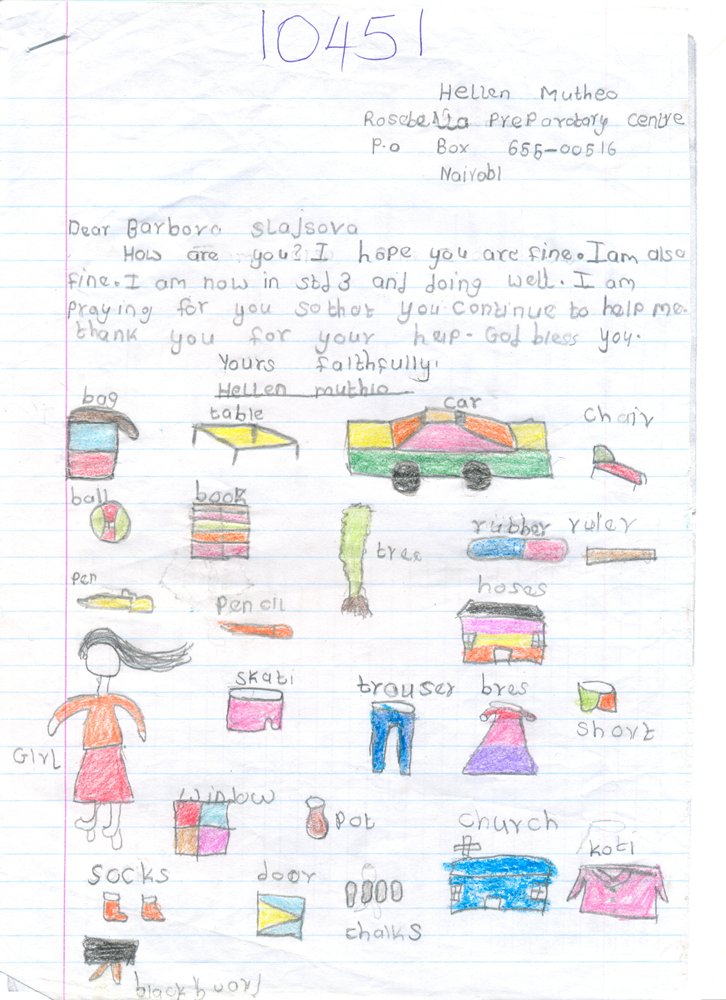 10451
Hellen Mutheo
Rosebella Preparatory Centre
P.o Box 655-00516
Nairobi
Dear Barbora slajsova
How are you? I hope you are fine. I am also
fine. I am now in std 3 and doing well. I am
praying for you so that you continue to help me.
thank you for your help. God bless you.
Yours faithfully.
Hellen muthio
bag
table
car
chair
ball
book
tree
rubber
ruler
pen
pencil
hoses
skati
trouser
bres
short
Girl
window
pot
church
koti
socks
door
chalks